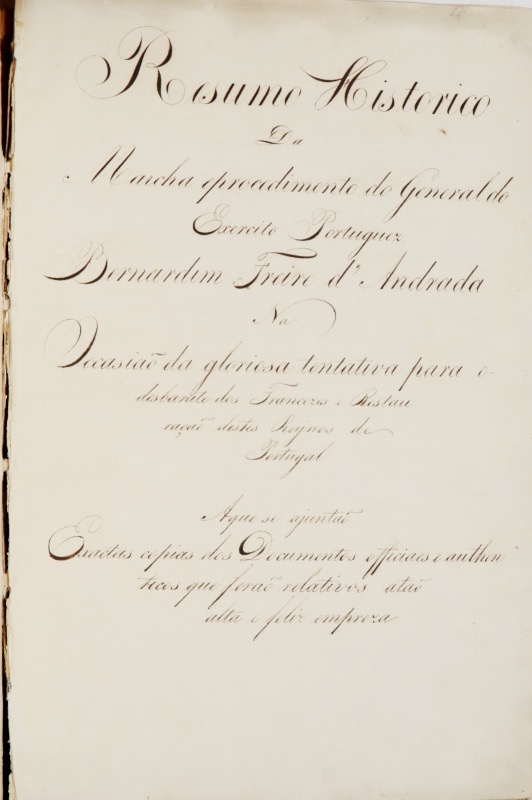 Resumo Historico
Da
Marcha eprocedimento do General do
Exercito Portuguez
Bernardim Freire d'Andrada
Na
Occasiaõ da gloriosa tentativa para o
desbarate dos Francezes e Restau
raçaõ destes Reynos de
Portugal
Aque se ajuntaõ
Exactas copias dos Documentos officiaes e authen
ticos que foraõ relativos ataõ
alta e feliz empreza